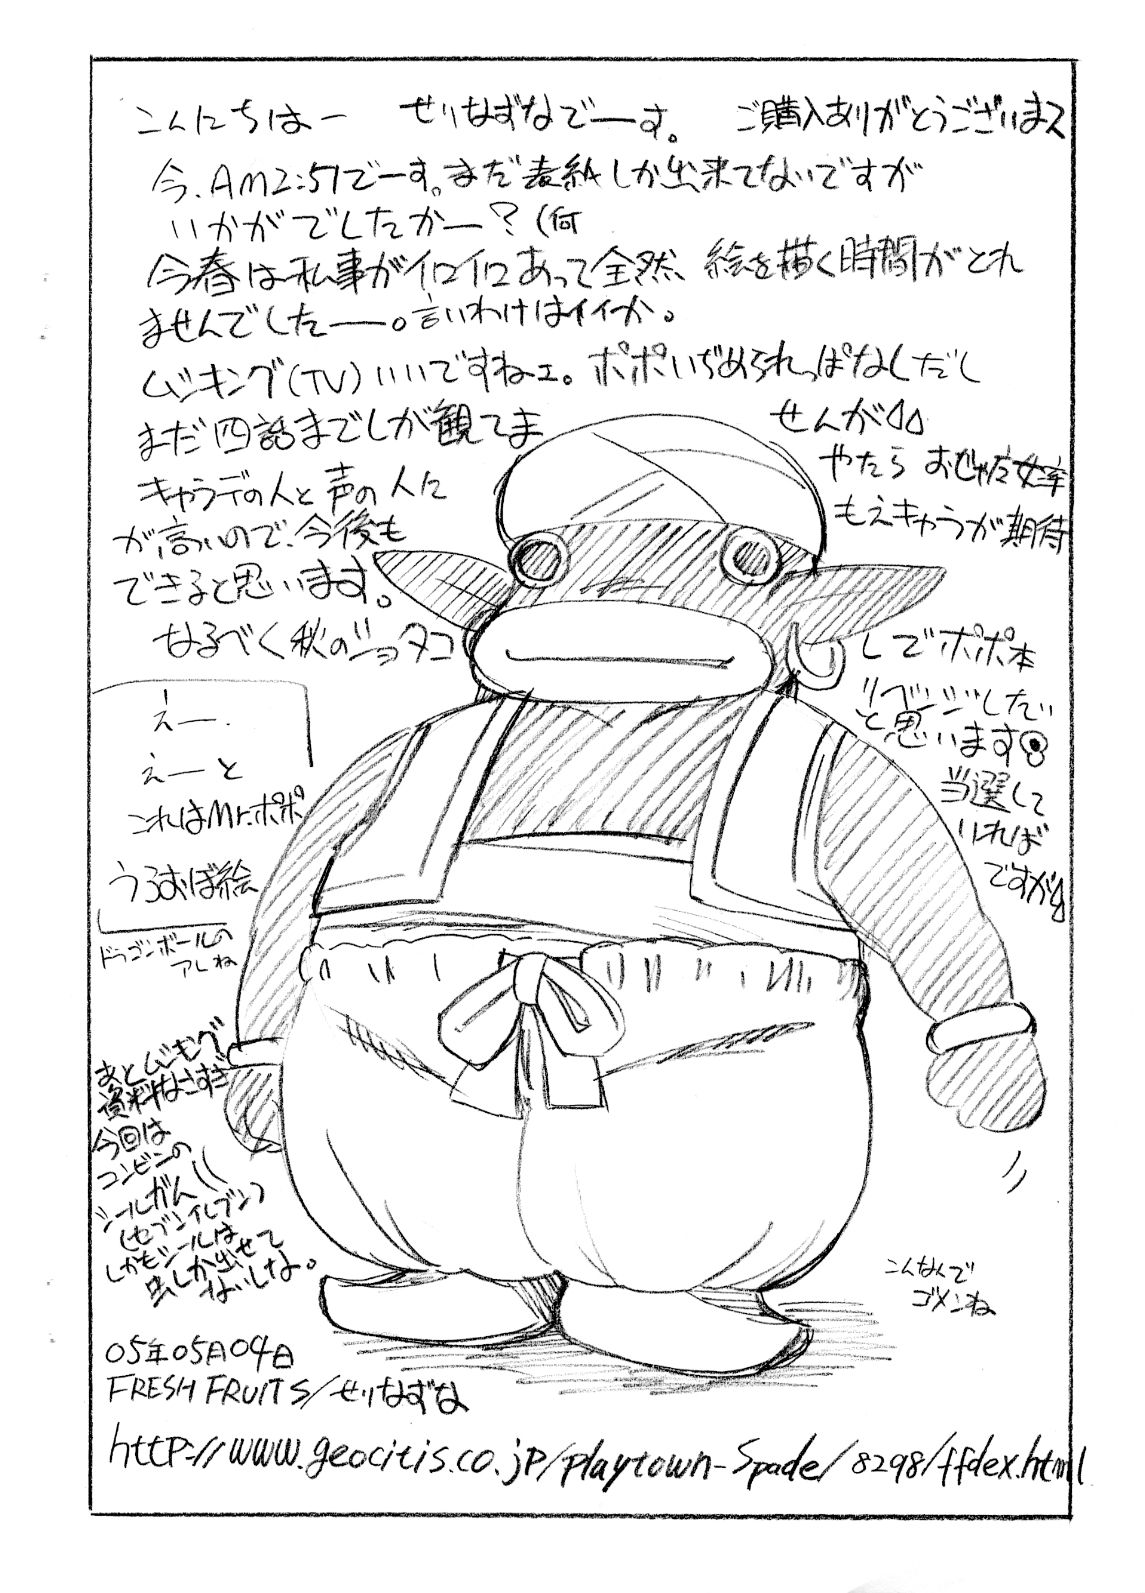 こんにちはー せりなずなでーす。 ご購入ありがとうございまス
今、AM2:51でーす。まだ表紙しか出来てないですが
いかがでしたかー？(何
今春は私事がイロイロあって全然、絵を描く時間がとれ
ませんでしたー。言いわけはイイか。
ムシキング(TV)いいですねェ。ポポいぢめられっぱなしだし
まだ四話までしか観てま
せんが
キャラデの人と声の人に
やたら おじゃ
が高いので、今後も
もえきゃらが期待
できると思います。
なるべく秋のショタコ
しでポポ本
リベンジしたい
と思います
当選して
いれば
ですが
えー、
えーと
これはMr.ポポ
うろおぼ絵
ドラゴンボールの
アレね
あとムシキング
資料なさすぎ
今回は
コンビニの
シールガム
(セブンイレブン)
しかもシールは
虫しか出せて
ないしな。
こんなんで
ゴメンね
05年05月04日
FRESH FRUITS/せりなずな
http://www.geocitis.co.jp/playtown-Spade/8298/ffdex.html